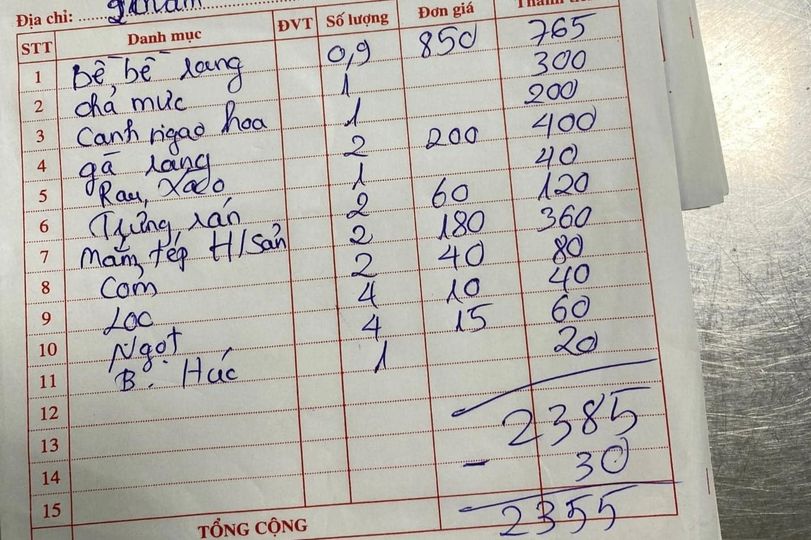 Địa chỉ:
STT Danh mục ĐVT Số lượng Đơn giá Thành tiền
1 Bề, bề rang 0,9 850 765
2 chả mực 1 300
3 canh ngao hoa 1 200
4 gà rang 2 200 400
5 Rau, xào 1 40
6 Trứng, rán 2 60 120
7 mắm, tép H/sản 2 180 360
8 Cơm 2 40 80
9 Loc 4 10 40
10 Ngọt 4 15 60
11 B. Húc 1 20
12 2385
13
14 - 30
15 2355
TỔNG CỘNG